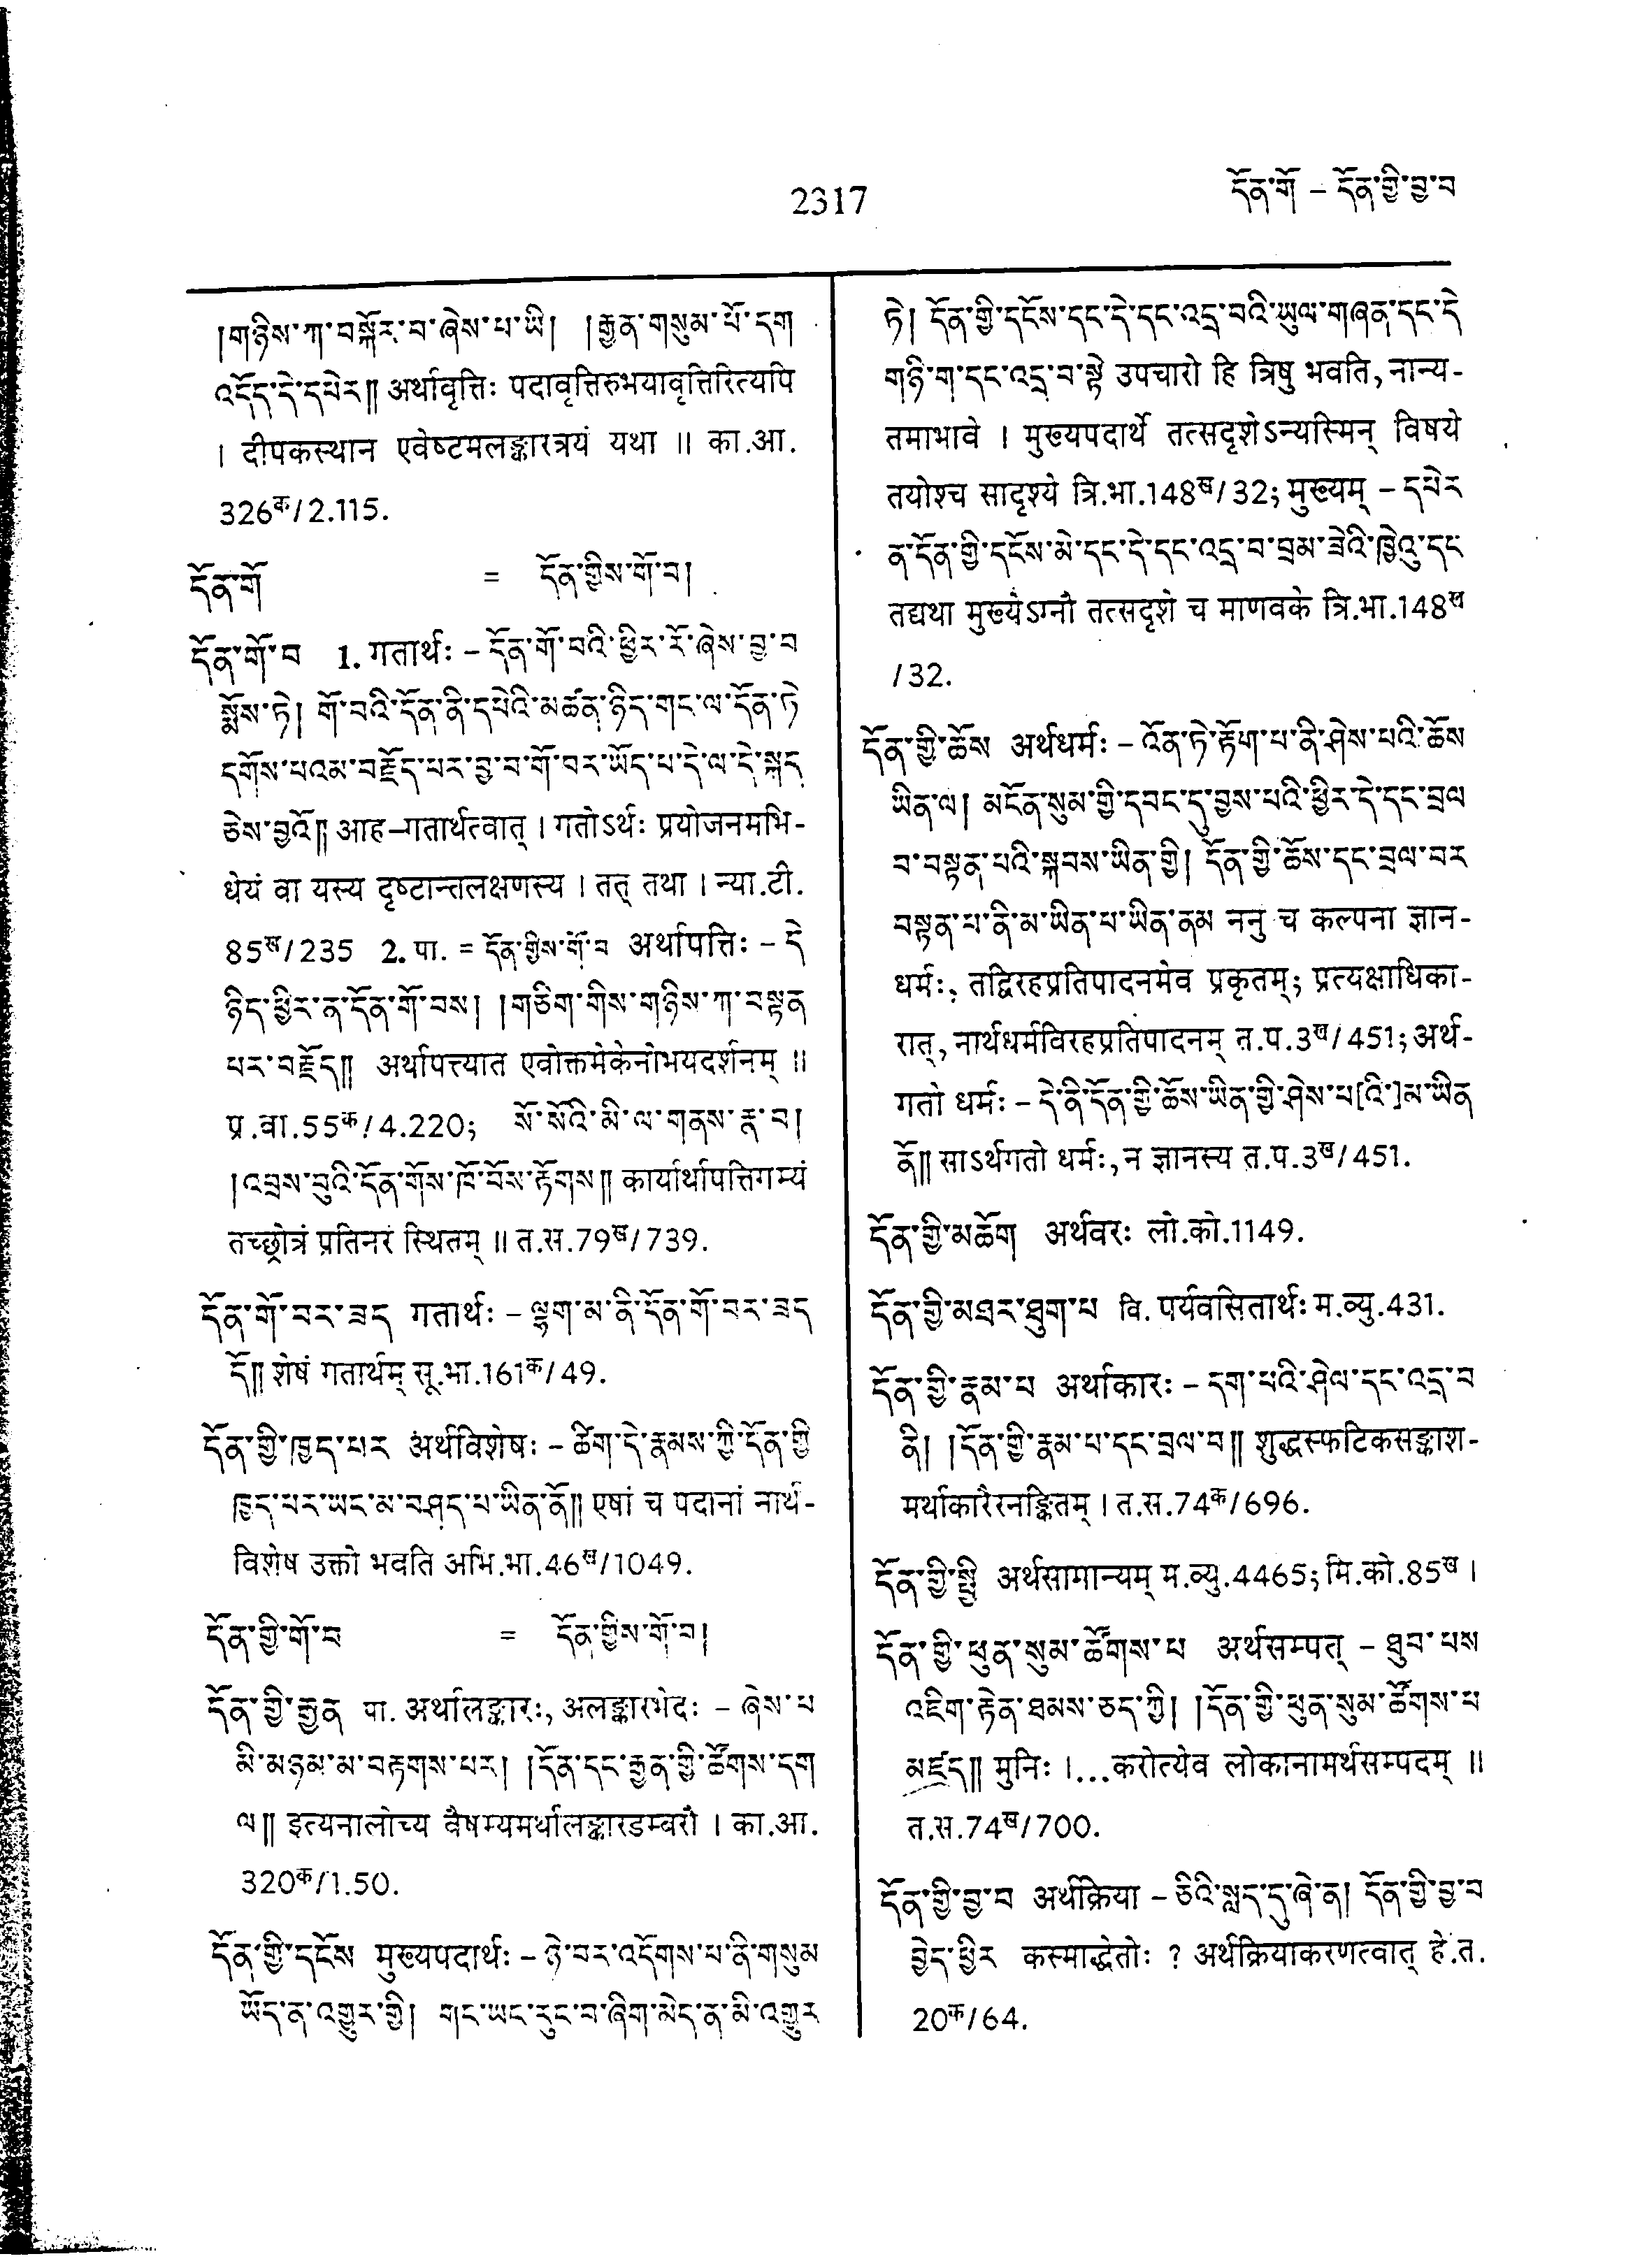 2317
དོན་གོ – དོན་གྱི་བྱ་བ
།གཉིས་ཀ་བསྐོར་བ་ཞེས་པ་ཡི། །རྒྱན་གསུམ་པོ་དག
འདོད་དེ་དཔེར༎ अर्थावृत्तिः पदावृत्तिरुभयावृत्तिरित्यपि
। दीपकस्थान एवेष्टमलङ्कारत्रयं यथा ॥ का.आ.
326क/2.115.
དོན་གོ = དོན་གྱིས་གོ་བ།
དོན་གོ་བ 1. गतार्थः – དོན་གོ་བའི་ཕྱིར་རོ་ཞེས་བྱ་བ
སྨོས་ཏེ། གོ་བའི་དོན་ནི་དཔེའི་མཚན་ཉིད་གང་ལ་དོན་ཏེ
དགོས་པའམ་བརྗོད་པར་བྱ་བ་གོ་བར་ཡོད་པ་དེ་ལ་དེ་སྐད
ཅེས་བྱའོ༎ आह–गतार्थत्वात् । गतोऽर्थः प्रयोजनमभि-
धेयं वा यस्य दृष्टान्तलक्षणस्य । तत् तथा । न्या.टी.
85ख/235 2. पा. = དོན་གྱིས་གོ་བ अर्थापत्तिः – དེ
ཉིད་ཕྱིར་ན་དོན་གོ་བས། །གཅིག་གིས་གཉིས་ཀ་བསྟན
པར་བརྗོད༎ अर्थापत्त्यात एवोक्तमेकेनोभयदर्शनम् ॥
प्र.वा.55क/4.220; སོ་སོའི་མི་ལ་གནས་རྣ་བ།
།འབྲས་བུའི་དོན་གོས་ཁོ་བོས་རྟོགས༎ कार्यार्थापत्तिगम्यं
तच्छ्रोत्रं प्रतिनरं स्थितम् ॥ त.स.79ख/739.
དོན་གོ་བར་ཟད गतार्थः – ལྷག་མ་ནི་དོན་གོ་བར་ཟད
དོ༎ शेषं गतार्थम् सू.भा.161क/49.
དོན་གྱི་ཁྱད་པར अर्थविशेषः – ཚིག་དེ་རྣམས་ཀྱི་དོན་གྱི
ཁྱད་པར་ཡང་མ་བཤད་པ་ཡིན་ནོ༎ एषां च पदानां नार्थ-
विशेष उक्तो भवति अभि.भा.46ख/1049.
དོན་གྱི་གོ་བ = དོན་གྱིས་གོ་བ།
དོན་གྱི་རྒྱན पा. अर्थालङ्कारः, अलङ्कारभेदः – ཞེས་པ
མི་མཉམ་མ་བརྟགས་པར། །དོན་དང་རྒྱན་གྱི་ཚོགས་དག
ལ༎ इत्यनालोच्य वैषम्यमर्थालङ्कारडम्बरौ । का.आ.
320क/1.50.
དོན་གྱི་དངོས मुख्यपदार्थः – ཉེ་བར་འདོགས་པ་ནི་གསུམ
ཡོད་ན་འགྱུར་གྱི། གང་ཡང་རུང་བ་ཞིག་མེད་ན་མི་འགྱུར
ཏེ། དོན་གྱི་དངོས་དང་དེ་དང་འདྲ་བའི་ཡུལ་གཞན་དང་དེ
གཉི་ག་དང་འདྲ་བ་སྟེ उपचारो हि त्रिषु भवति, नान्य-
तमाभावे । मुख्यपदार्थे तत्सदृशेऽन्यस्मिन् विषये
तयोश्च सादृश्ये त्रि.भा.148ख/32; मुख्यम् – དཔེར
ན་དོན་གྱི་དངོས་མེ་དང་དེ་དང་འདྲ་བ་བྲམ་ཟེའི་ཁྱེའུ་དང
तद्यथा मुख्येऽग्नौ तत्सदृशे च माणवके त्रि.भा.148ख
/32.
དོན་གྱི་ཆོས अर्थधर्मः – འོན་ཏེ་རྟོག་པ་ནི་ཤེས་པའི་ཆོས
ཡིན་ལ། མངོན་སུམ་གྱི་དབང་དུ་བྱས་པའི་ཕྱིར་དེ་དང་བྲལ
བ་བསྟན་པའི་སྐབས་ཡིན་གྱི། དོན་གྱི་ཆོས་དང་བྲལ་བར
བསྟན་པ་ནི་མ་ཡིན་པ་ཡིན་ནམ ननु च कल्पना ज्ञान-
धर्मः, तद्विरहप्रतिपादनमेव प्रकृतम्; प्रत्यक्षाधिका-
रात्, नार्थधर्मविरहप्रतिपादनम् त.प.3ख/451; अर्थ-
गतो धर्मः – དེ་ནི་དོན་གྱི་ཆོས་ཡིན་གྱི་ཤེས་པ[འི་]མ་ཡིན
ནོ༎ साऽर्थगतो धर्मः, न ज्ञानस्य त.प.3ख/451.
དོན་གྱི་མཆོག अर्थवरः लो.को.1149.
དོན་གྱི་མཐར་ཐུག་པ वि. पर्यवसितार्थः म.व्यु.431.
དོན་གྱི་རྣམ་པ अर्थाकारः – དག་པའི་ཤེལ་དང་འདྲ་བ
ནི། །དོན་གྱི་རྣམ་པ་དང་བྲལ་བ༎ शुद्धस्फटिकसङ्काश-
मर्थाकारैरनङ्कितम् । त.स.74क/696.
དོན་གྱི་སྤྱི अर्थसामान्यम् म.व्यु.4465; मि.को.85ख ।
དོན་གྱི་ཕུན་སུམ་ཚོགས་པ अर्थसम्पत् – ཐུབ་པས
འཇིག་རྟེན་ཐམས་ཅད་ཀྱི། །དོན་གྱི་ཕུན་སུམ་ཚོགས་པ
མཛད༎ मुनिः ।...करोत्येव लोकानामर्थसम्पदम् ॥
त.स.74ख/700.
དོན་གྱི་བྱ་བ अर्थक्रिया – ཅིའི་སླད་དུ་ཞེ་ན། དོན་གྱི་བྱ་བ
བྱེད་ཕྱིར कस्माद्धेतोः ? अर्थक्रियाकरणत्वात् हे.त.
20क/64.